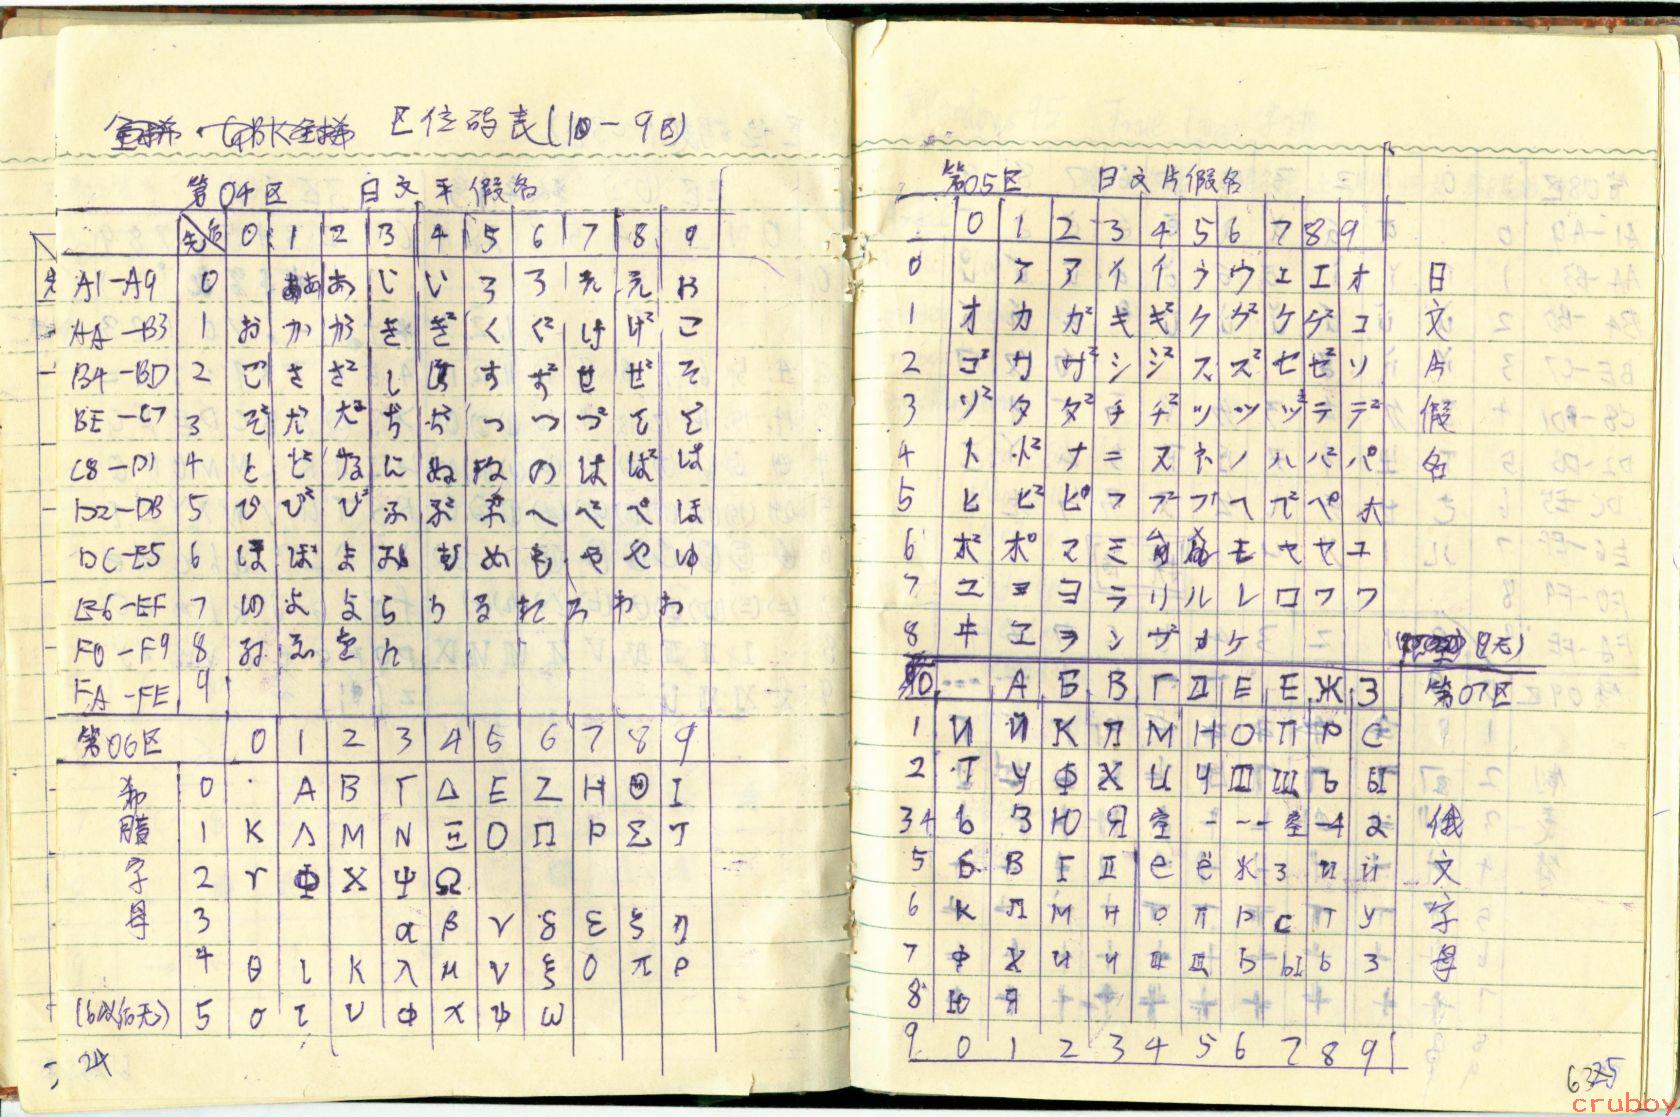 区位码表(10-9区)
第04区 日文平假名
先 后 0 1 2 3 4 5 6 7 8 9
先 A1-A9 0 ぁ あ ぃ い ぅ う ぇ え ぉ
AA-B3 1 お か が き ぎ く ぐ け げ こ
B4-BD 2 ご さ ざ し す ず せ ぜ そ
BE-C7 3 ぞ た だ ち ぢ っ つ づ て で
C8-D1 4 と ど な に ぬ ね の は ば ぱ
D2-DB 5 ひ び ぴ ふ ぶ ぷ へ べ ぺ ほ
DC-E5 6 ぼ ぽ ま み む め も ゃ や ゅ
E6-EF 7 ゆ ょ よ ら り る れ ろ ゎ わ
F0-F9 8 ゐ ゑ を ん
FA-FE 9
第06区 0 1 2 3 4 5 6 7 8 9
希 0 · Α Β Γ Δ Ε Ζ Η Θ Ι
腊 1 Κ Λ Μ Ν Ξ Ο Π Ρ Σ Τ
字 2 Υ Φ Χ Ψ Ω
母 3 α β γ δ ε ξ η
4 θ ι κ λ μ ν ξ ο π ρ
(6以后无) 5 σ τ υ φ χ ψ ω
24
第05区 日文片假名
0 1 2 3 4 5 6 7 8 9
0 ァ ア ィ イ ゥ ウ ェ エ ォ 日
1 オ カ ガ キ ギ ク グ ケ ゲ コ 文
2 ゴ サ ザ シ ジ ス ズ セ ゼ ソ 片
3 ゾ タ ダ チ ヂ ッ ツ ヅ テ デ 假
4 ト ド ナ ニ ヌ ネ ノ ハ バ パ 名
5 ヒ ビ ピ フ ブ プ ヘ ベ ペ ホ
6 ボ ポ マ ミ モ ャ ヤ ュ
7 ユ ョ ヨ ラ リ ル レ ロ ヮ ワ
8 ヰ ヱ ヲ ン ヴ ヵ ヶ (9无)
0 А Б В Г Д Е Ё Ж З 第07区
1 И Й К Л М Н О П Р С
2 Т У Ф Х Ц Ч Ш Щ Ъ Ы
34 Ь Э Ю Я 空 - - - - 空 -4 а 俄
5 б в г д е ё ж з и й 文
6 к л м н о п р с т у 字
7 ф х ц ч ш щ ъ ы ь э 母
8 ю я
9 0 1 2 3 4 5 6 7 8 9
cruboy